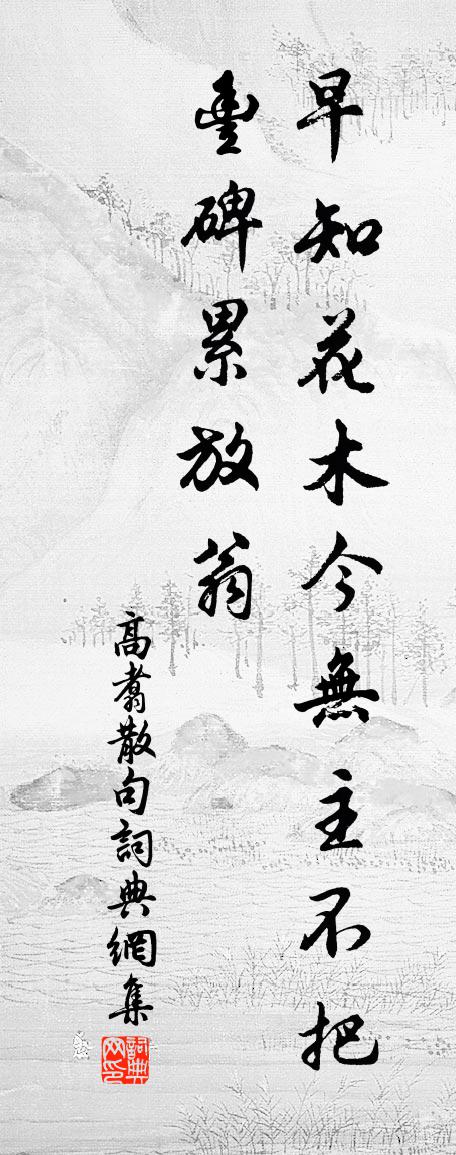 早知花木今無主不把
豊碑累放翁
高翥散句詞典網集
詞典网印